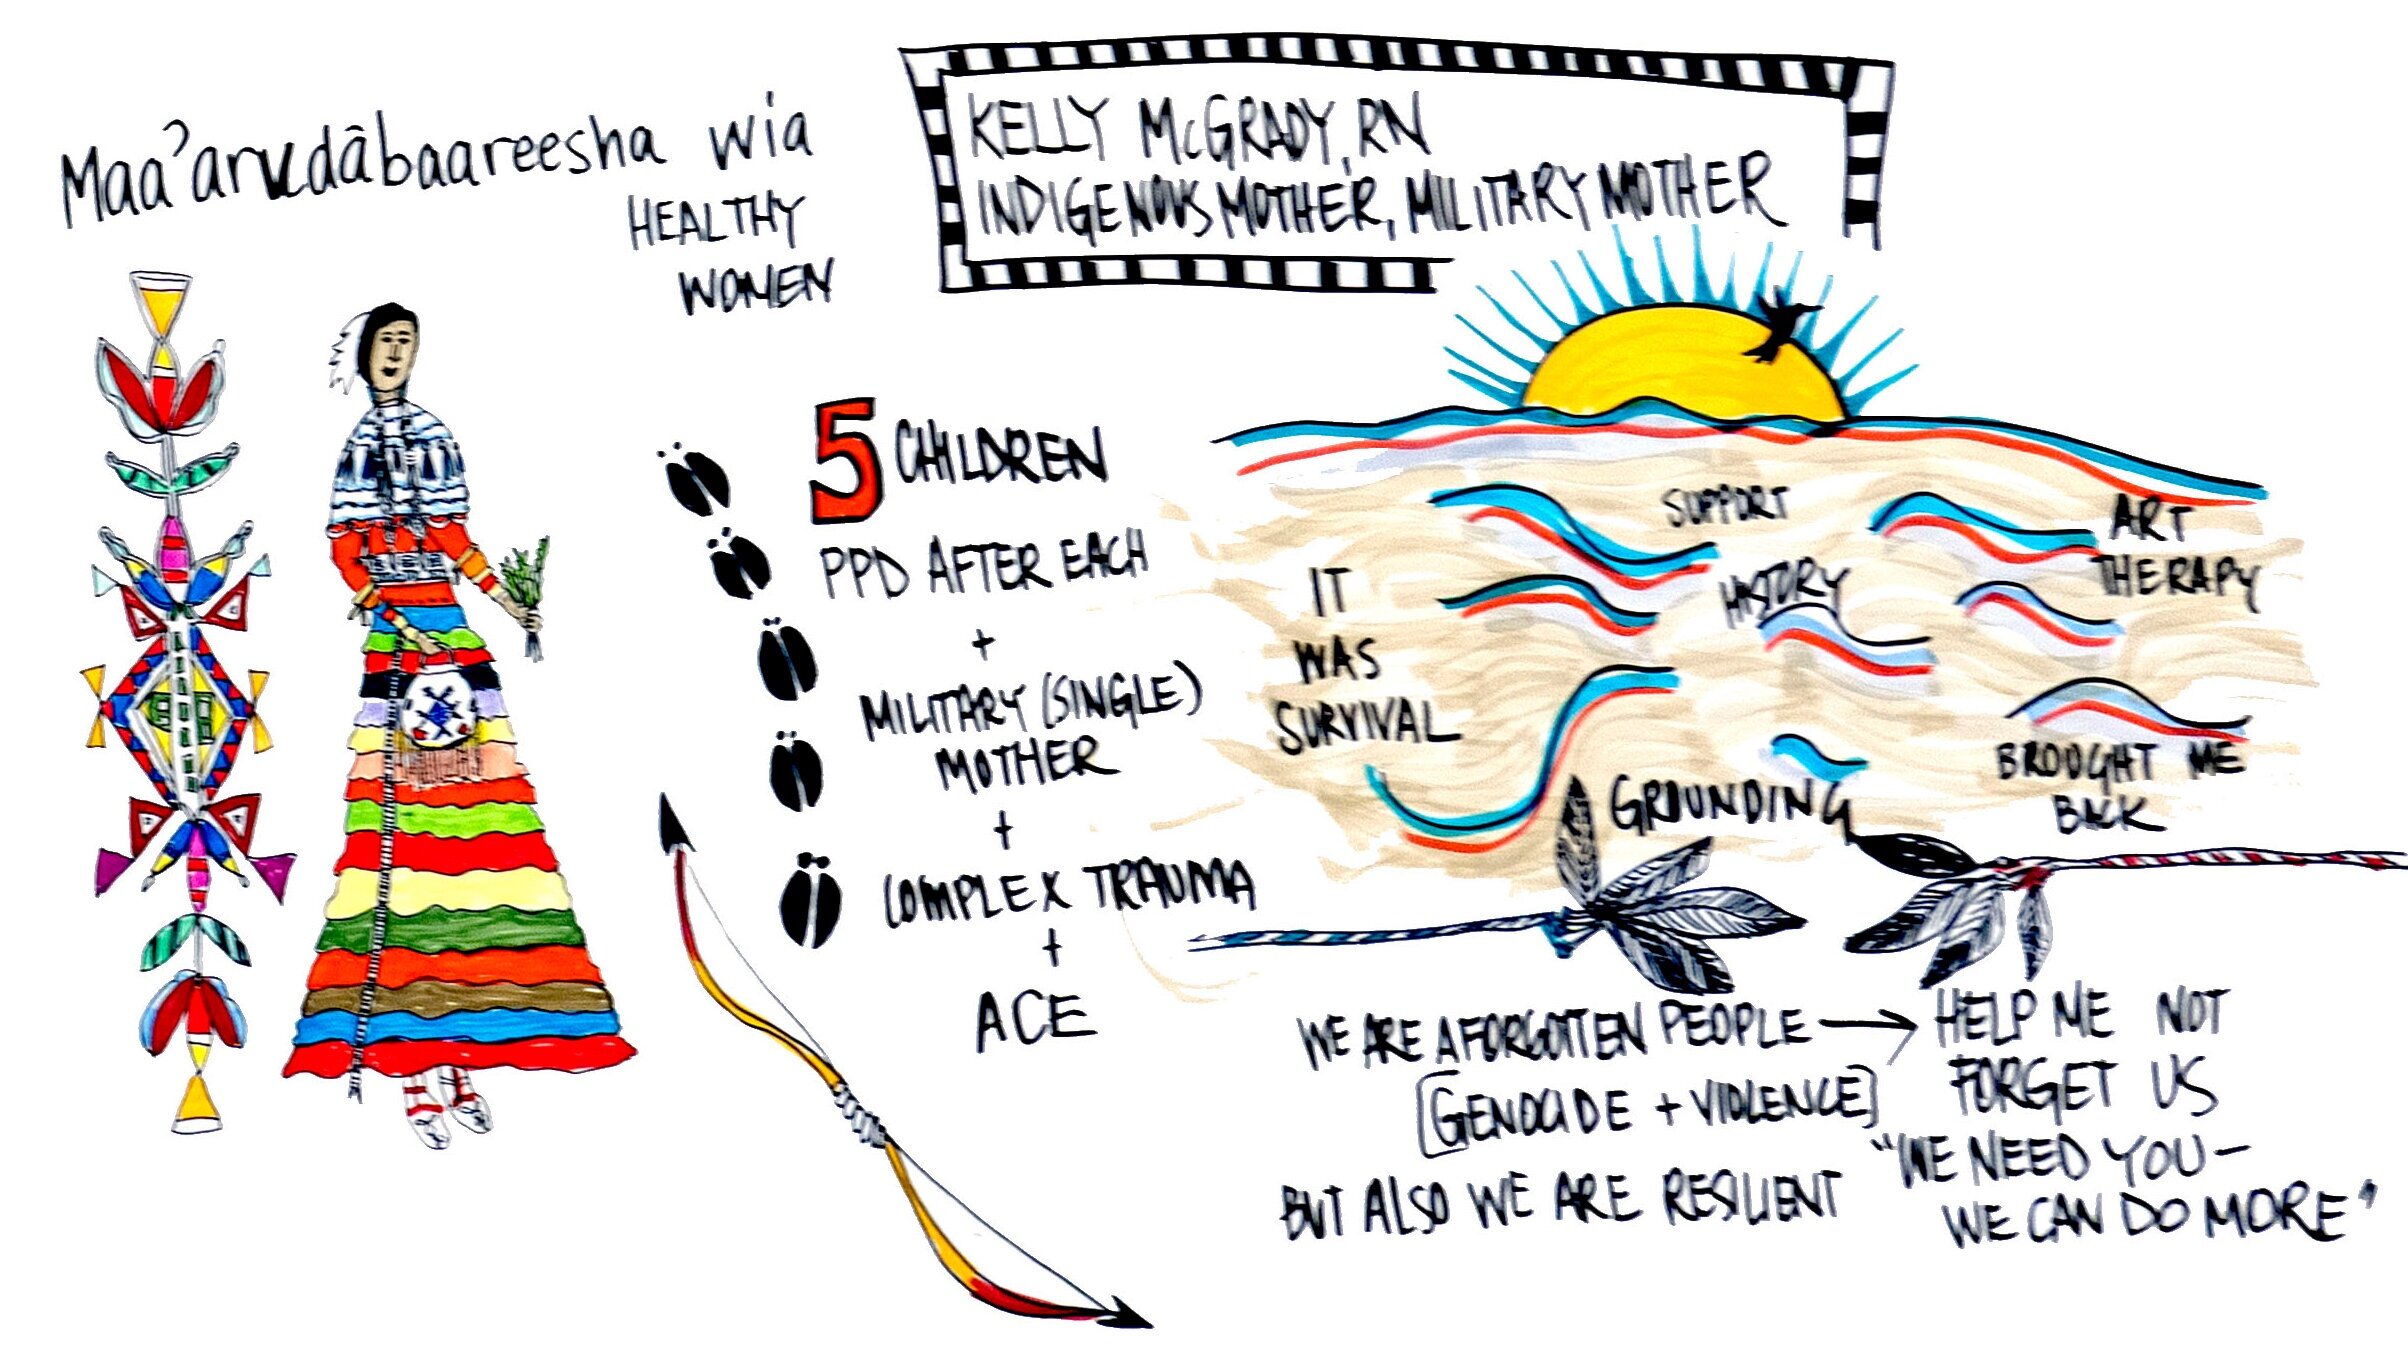 Maa'arudâbaareesha wia
HEALTHY
WOMEN
KELLY McGRADY, RN
INDIGENOUS MOTHER, MILITARY MOTHER
5 CHILDREN
PPD AFTER EACH
+
MILITARY (SINGLE)
MOTHER
+
COMPLEX TRAUMA
+
ACE
IT
WAS
SURVIVAL
SUPPORT
HISTORY
GROUNDING
ART
THERAPY
BROUGHT ME
BACK
WE ARE A FORGOTTEN PEOPLE →
[GENOCIDE + VIOLENCE]
BUT ALSO WE ARE RESILIENT
HELP ME NOT
FORGET US
"WE NEED YOU—
WE CAN DO MORE"